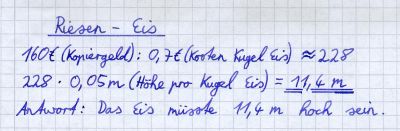 Riesen - Eis
160€ (Kopiergeld) : 0,7€ (Kosten Kugel Eis) ≈ 228
228 · 0,05m (Höhe pro Kugel Eis) = 11,4 m
Antwort: Das Eis müsste 11,4 m hoch sein.